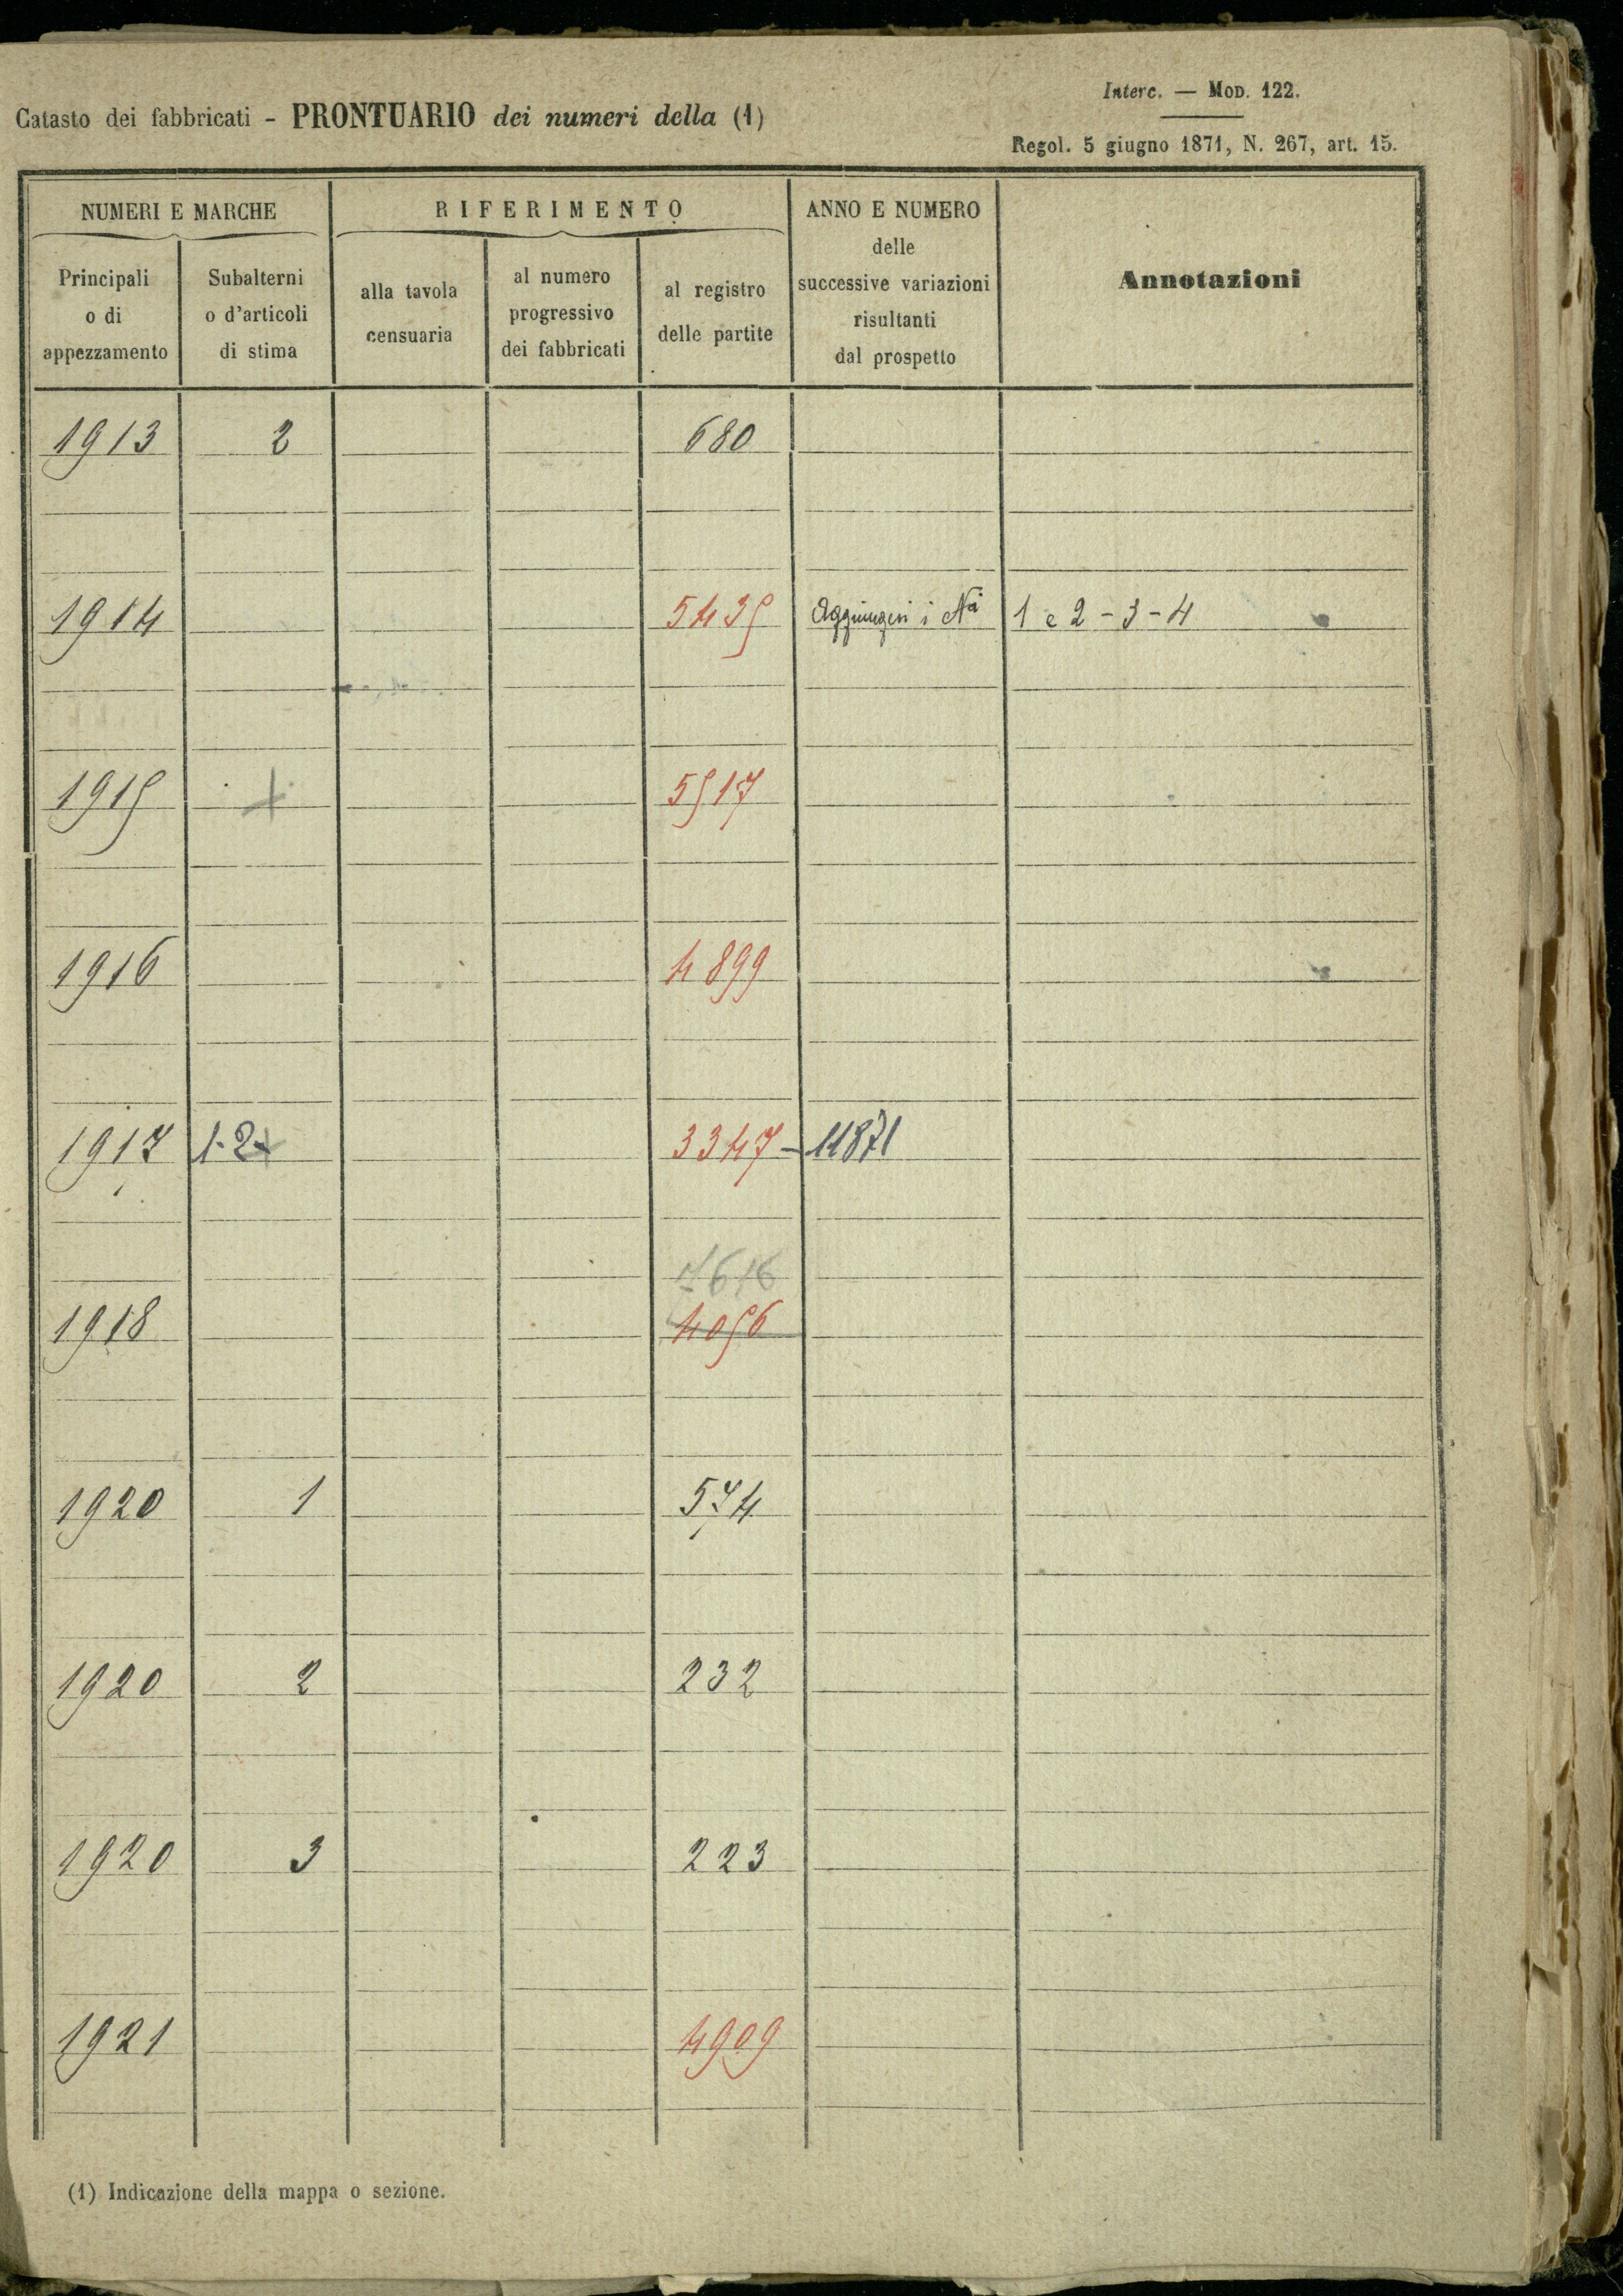 Interc. — MOD. 122.
Catasto dei fabbricati - PRONTUARIO dei numeri della (1)
Regol. 5 giugno 1871, N. 267, art. 15.
NUMERI E MARCHE
RIFERIMENTO
ANNO E NUMERO
delle
successive variazioni
risultanti
dal prospetto
Annotazioni
Principali
o di
appezzamento
Subalterni
o d'articoli
di stima
alla tavola
censuaria
al numero
progressivo
dei fabbricati
al registro
delle partite
1913 2 680
1914 5435 Aggiungesi i Ni 1 e 2 - 3 - 4
1915 + 5517
1916 4899
1917 1-2 3347 - 11871
7616
1918 4056
1920 1 574
1920 2 232
1920 3 223
1921 4909
(1) Indicazione della mappa o sezione.